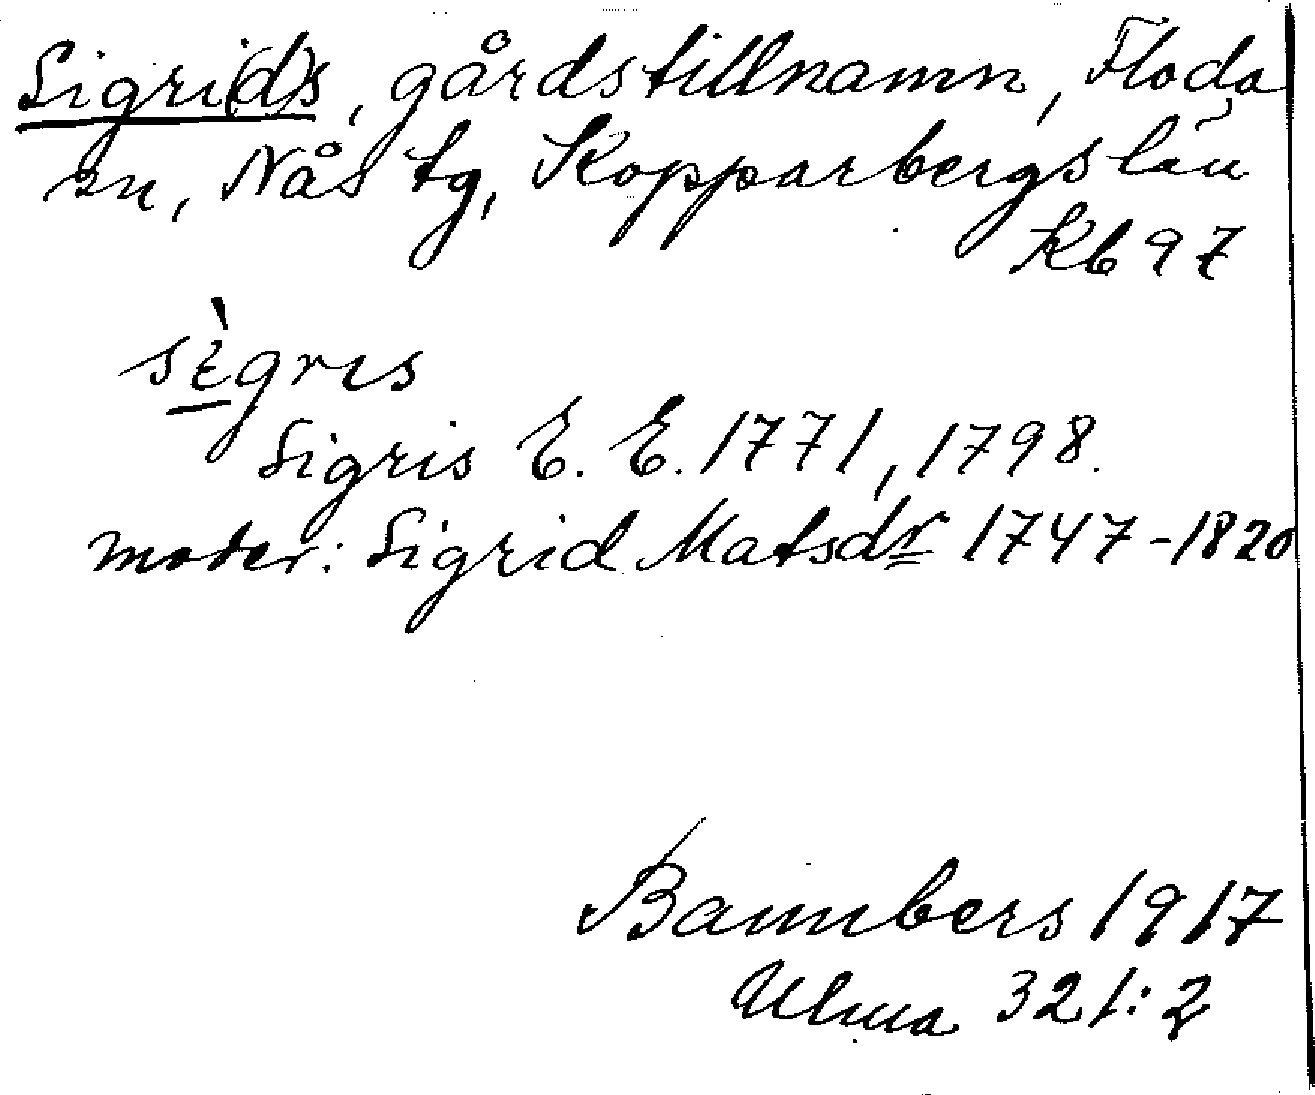 Sigri(d)s, gårdstillnamn, Floda
sn, Nås tg, Kopparbergs län
Kb 97
sègrıs
Sigris E. E. 1771, 1798.
moder: Sigrid Matsdr 1747-1820
Bannbers 1917
Ulma 321:2